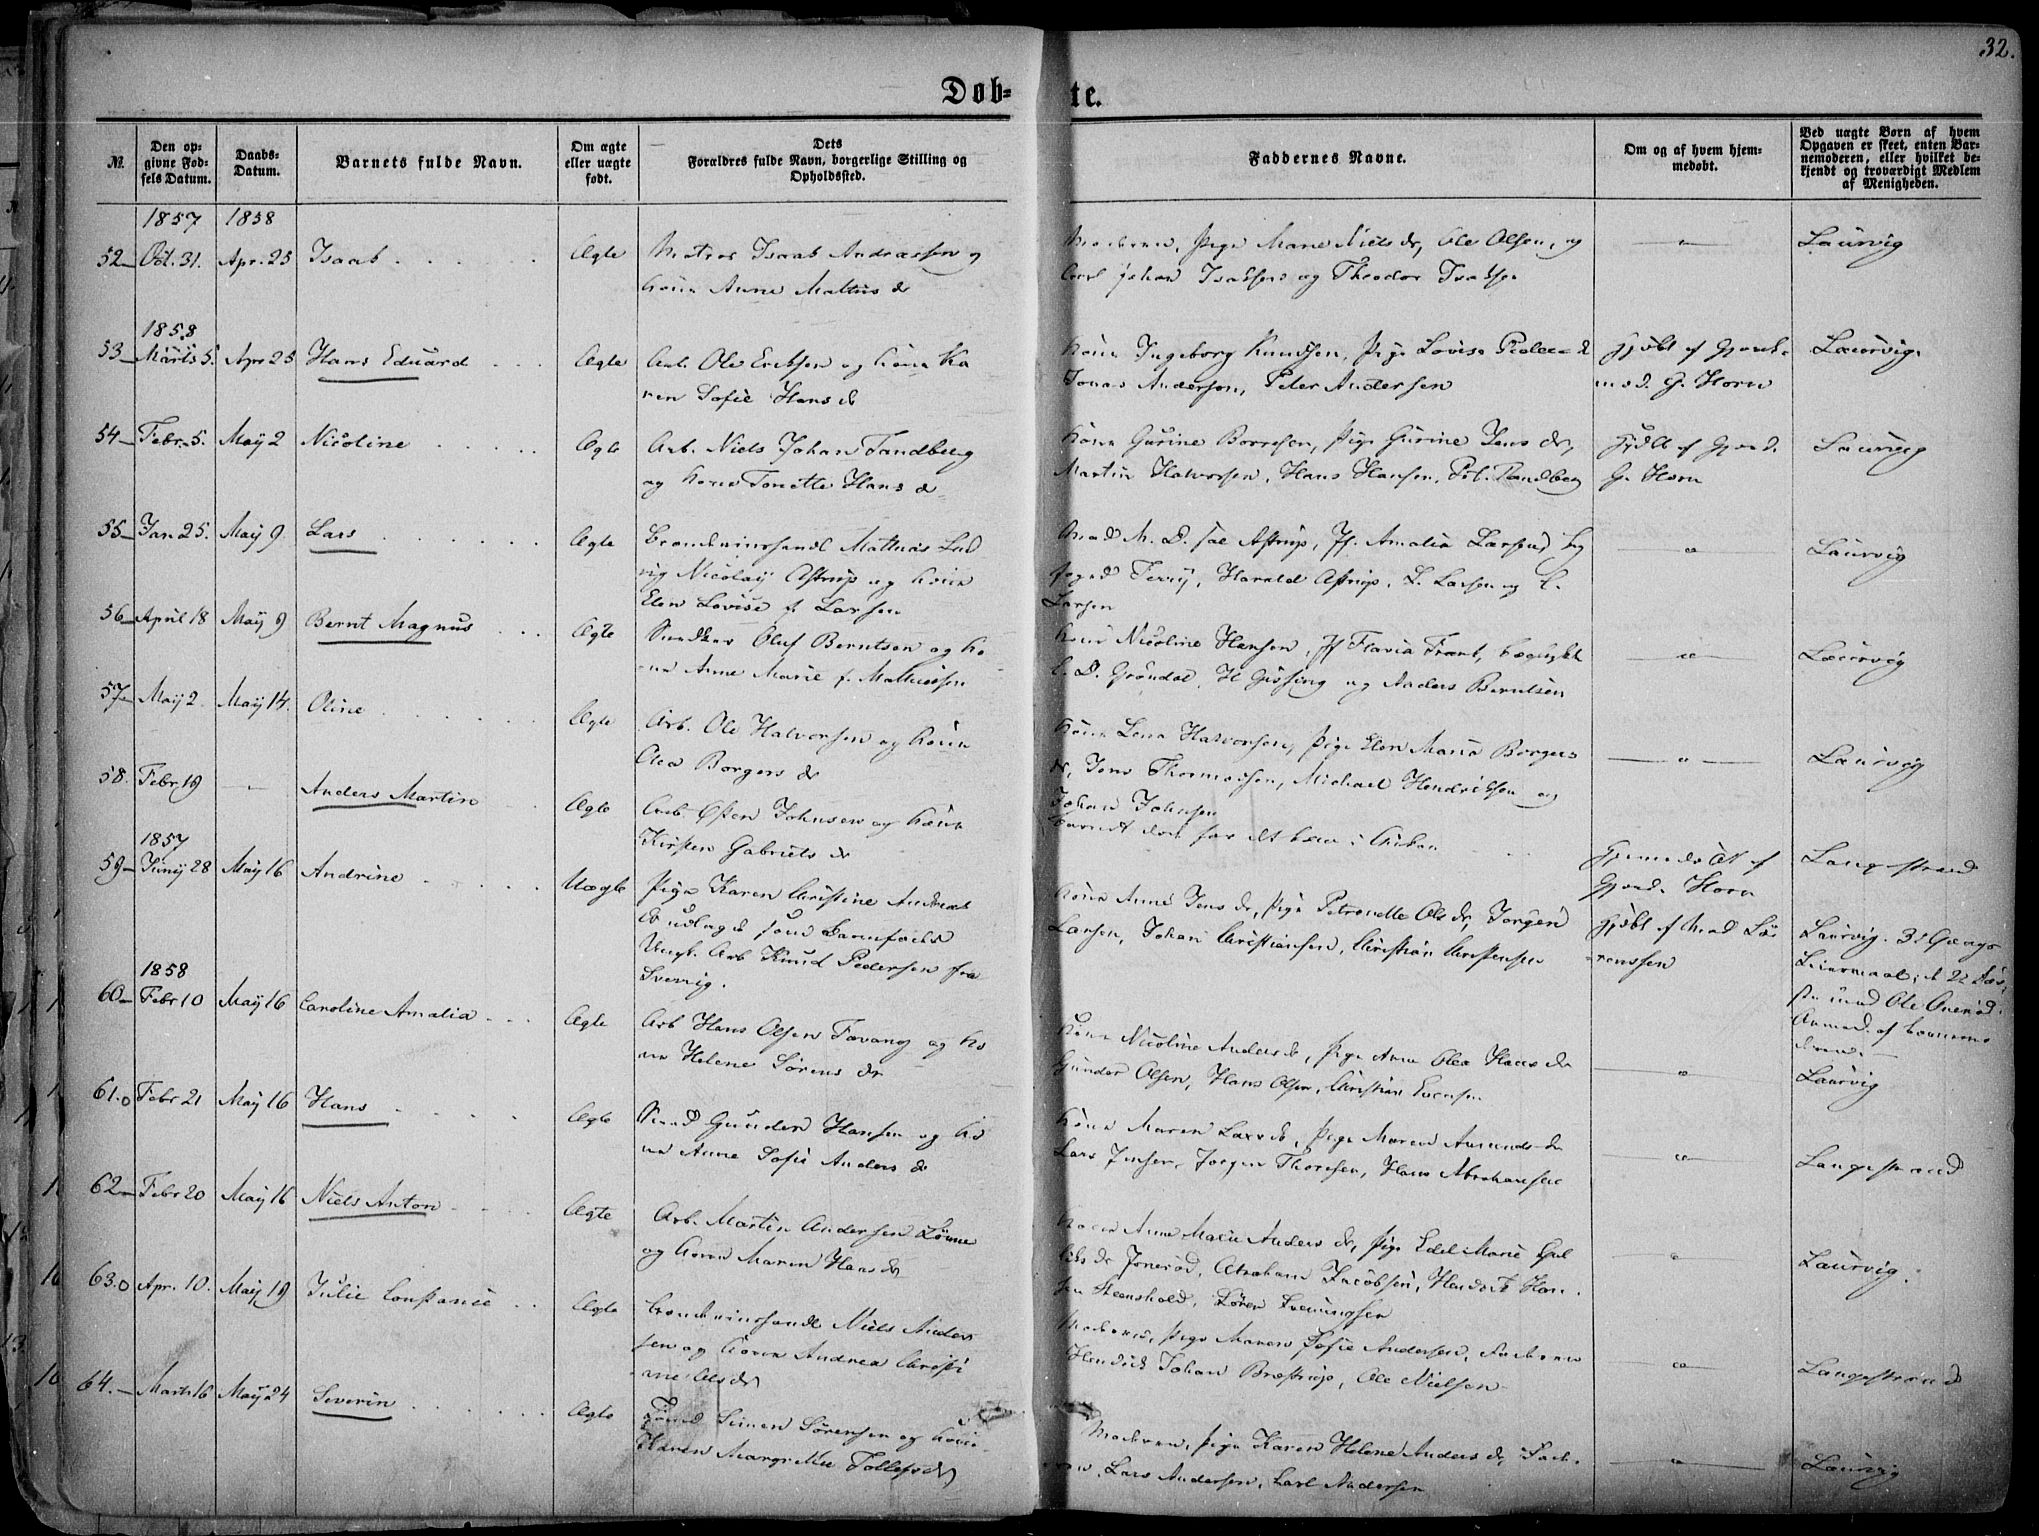 32.
Døb- te.
Nr.
Den opgivne Fødsels Datum.
Daabs-Datum.
Barnets fulde Navn.
Om ægte eller uægte født.
Dets
Forældres fulde Navn, borgerlige Stilling og
Opholdssted.
Faddernes Navne.
Om og af hvem hjemmedøbt.
Ved uægte Børn af hvem
Opgaven er skeet, enten Barnemoderen, eller hvilket bekjendt og troværdigt Medlem
af Menigheden.
1857 1858
52 Oct. 31. Apr. 25 Isaak Ægte Matros Isaak Andreassen og
Kone Anne Mathis d
Moderen, Pige Maren Niels dr, Ole Olsen, og
Carl Johan Isaksen og Theodor Isaksen
Laurvig
1858
53 Marts 5. Apr 25 Hans Eduard Ægte Arb. Ole Eriksen og Kone Ka
ren Sofie Hans d
Kone Ingeborg Knudsen, Pige Lovise Peder d
Jonas Andersen, Peter Andersen
Hjdbt af Gjord.
mod. G. Horn
Laurvig
54 Febr. 5. May 2 Nicoline Ægte Arb. Niels Johan Sandberg
og Kone Tonette Hans d
Kone Gurine Borresen, Pige Gurine Jens dr,
Martin Halvorsen, Hans Hansen, Sandberg
Hjdbt af Gjord.
G. Horn
Laurvig
55 Jan 25. May 9 Lars Ægte Mathias Lud
vig Nicolay Astrup og Kone
Elen Lovise f. Larsen
Mad M. D. Astrup, Jf. Amalia Larsen, By
foged Harald Astrup, L. Larsen og C.
Larsen
Laurvig
56 April 18 May 9 Bernt Magnus Ægte Snedker Oluf Berntsen og Ko
ne Anne Marie f. Mathisen
Kone Nicoline Hansen, Jf Flavia
C. D. Grøndal, H Gissing og Anders Berntsen
Laurvig
57 May 2. May 14. Oline Ægte Arb. Ole Halvorsen og Kone
Olea Borgers dr
Kone Lena Halvorsen, Pige Elen Maria Borgers
dr, Jens Thormodsen, Michael Hendriksen og
Johan Johnsen
Laurvig
58. Febr 19 Anders Martin Ægte Arb. Østen Johnsen og Kone
Kirsten Gabriels dr
Barnet død før det kom i Kirken
Hjemmedøbt af
Gjord. Horn
Langestrand
1857
59 Juny 28 May 16 Andrine Uægte Pige Karen Christine Andreas
d udlagt som Barnefader
Ungk. Arb Knud Pedersen fra
Sverrig.
Kone Anne Jens dr, Pige Petronelle Ols dr, Jørgen
Larsen, Johan Christiansen, Christian Christensen
Hjdbt af Mad Lau
renssen
Laurvig. 3d Gangs
Leiermaal,
med Ole
Anmed. af Barnemo
deren.
1858
60 Febr 10 May 16 Caroline Amalia Ægte Arb Hans Olsen Farvang og Ko
ne Helene Sørens dr
Kone Nicoline Anders d, Pige Anne Olea Hans dr
Gunder Olsen, Hans Olsen, Christian Evensen
Laurvig
61. Febr 21 May 16 Hans Ægte Gunder Hansen og Ko
ne Anne Sofie Anders d
Kone Maren Lars d, Pige Maren Amunds d
Lars Jensen, Jørgen Thoresen, Hans Abrahamsen
Langestrand
62 Febr 20 May 16 Niels Anton Ægte Arb. Martin Andersen
og Kone Maren Hans dr
Kone Anne Marie Anders dr, Pige Edel Marie
Abraham Jacobsen, Hendrik Han
sen Steenshold, Søren
Laurvig.
63. Apr. 10. May 19 Julie Constance Ægte Niels Ander
sen og Kone Andrea Christi
ne Ols dr
Moderen, Pige Maren Sofie Andersen, Faderen
Hendrik Johan Brestrup, Ole Nielsen
Langestrand
64. Marts 16 May 24 Severin Ægte Simen Sørensen og Kone
Karen Margrethe Tollefs dr
Moderen, Pige Karen Helene Anders dr, Fade
ren, Lars Andersen, Carl Andersen
Laurvig